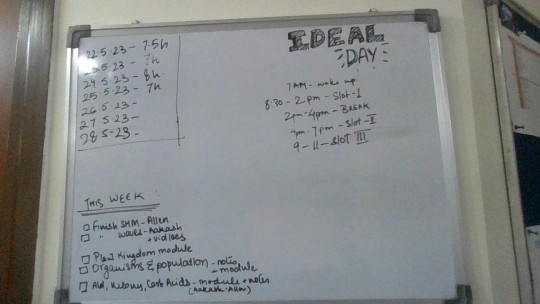 22.5.23 - 7.5h
23.5.23 - 7h
24.5.23 - 8h
25.5.23 - 7h
26.5.23 -
27.5.23 -
28.5.23 -
IDEAL
DAY
7AM - wake up
8:30 - 2pm - Slot-I
2pm - 4pm - BREAK
4pm - 7pm - Slot-II
9 - 11 - Slot III
THIS WEEK:
Finish SHM - Allen
" waves - Aakash
+ videos
Plant Kingdom module
Organisms & population - notes
- module
Ald, Ketones, Carb Acids - module + notes
(Aakash-Allen)